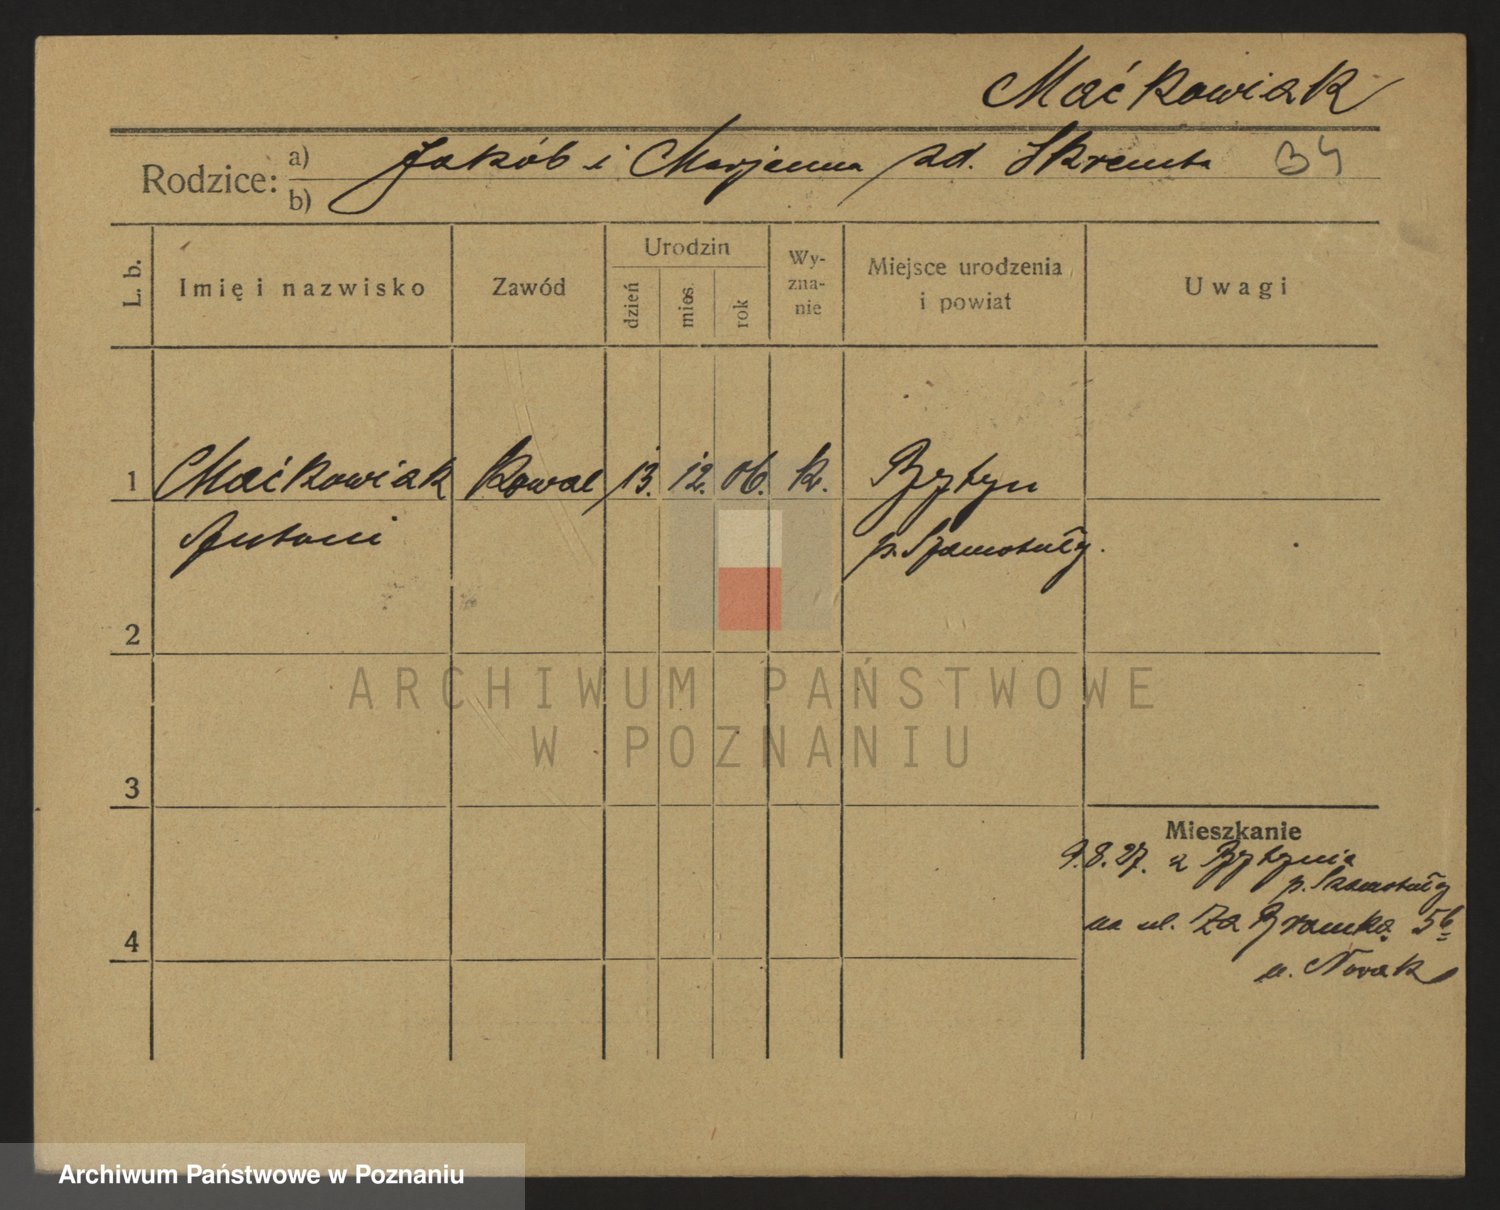 Maćkowiak
Rodzice: a) b) Jakób i Marjanna zd. Skrenta 34
L. b.
Imię i nazwisko
Zawód
Urodzin
dzień
mies.
rok
Wy-
zna-
nie
Miejsce urodzenia
i powiat
Uwagi
1 Maćkowiak Kowal 13. 12. 06. k. Bytyn
Antoni p. Szamotuły.
2
3
4
Mieszkanie
9.8.27. z Bytynia
p. Szamotuły
na ul. Za Bramką 5b
u. Nowak
ARCHIWUM PAŃSTWOWE
W POZNANIU
Archiwum Państwowe w Poznaniu